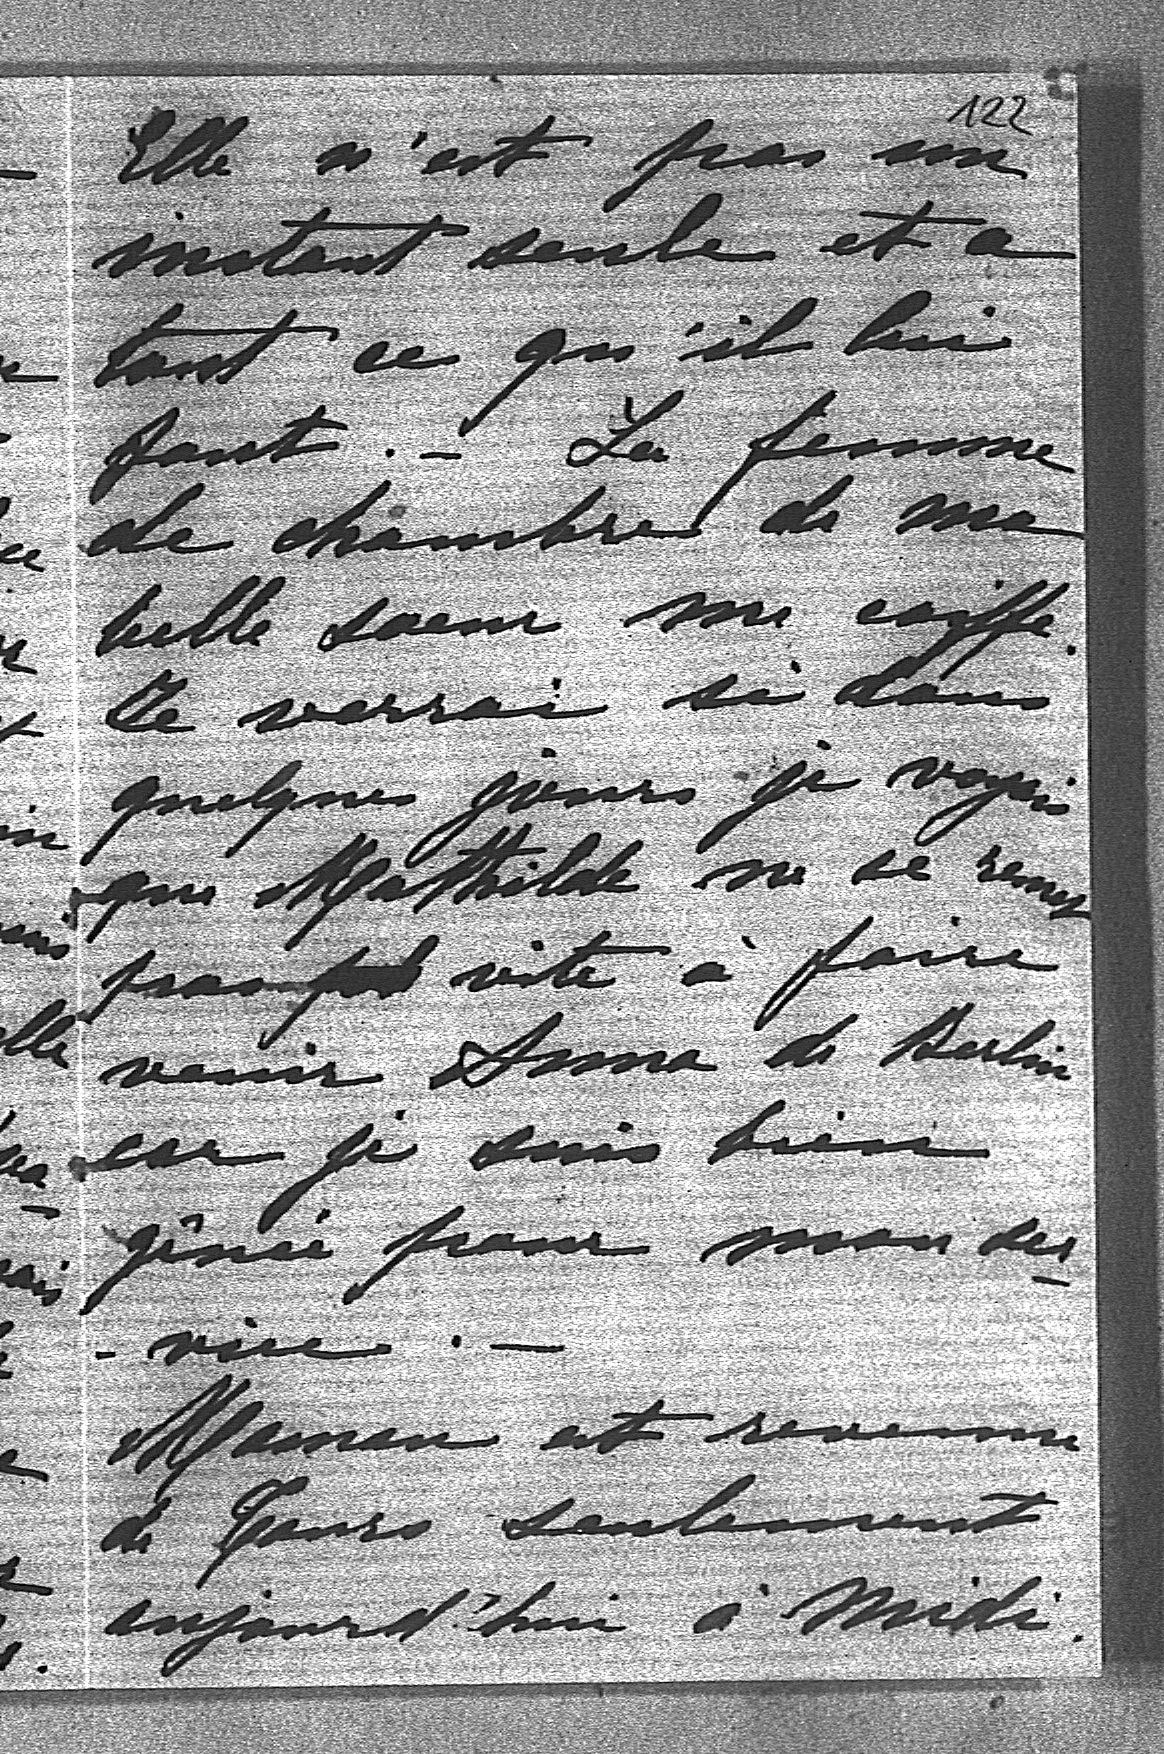 122
Elle n'est pas un
instant seule et a
tout ce qu'il lui
faut. - La femme
de chambre de ma
belle soeur me coiffe.
Je verrai si dans
quelques jours je voyais
que Mathilde ne se remet
pas vite à faire
venir Anna de Berlin
car je suis bien
gênée pour mon ser
- vice. -
Maman est revenue
de Tours seulement
aujourd'hui à Midi.